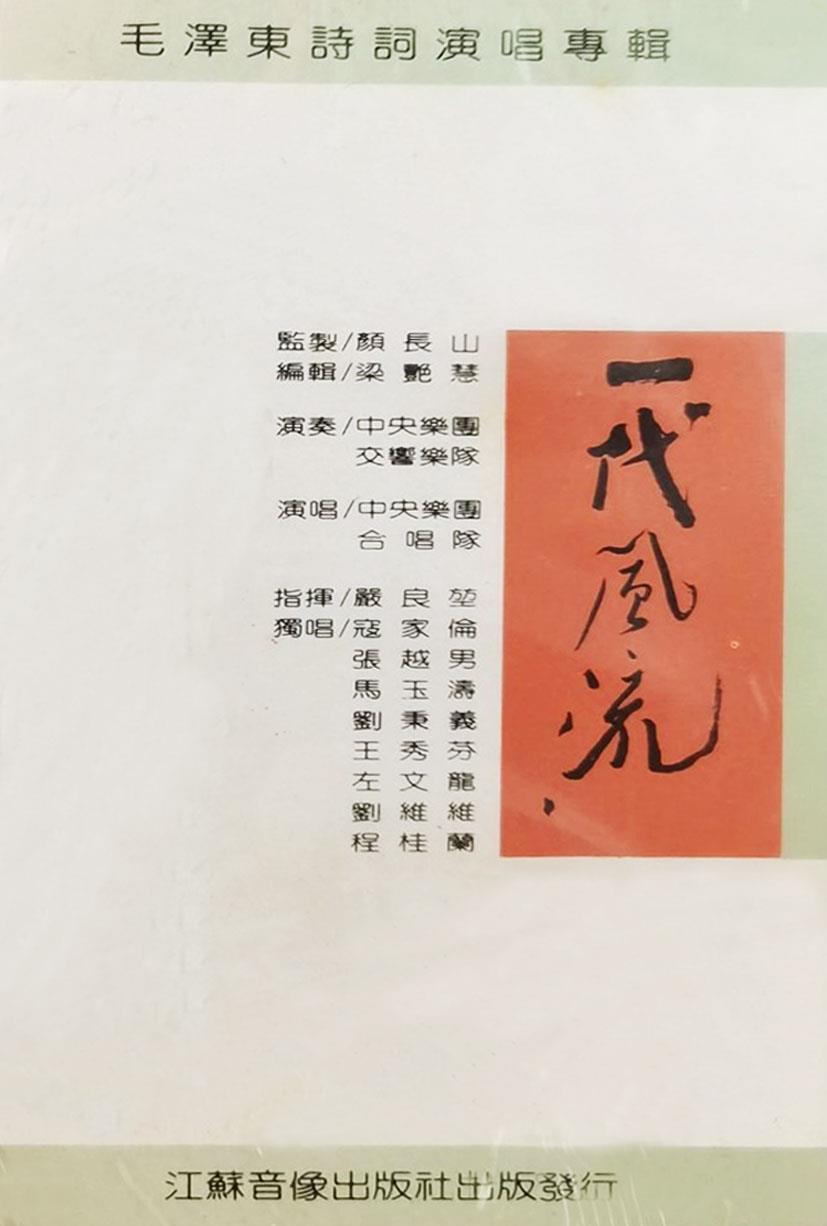 毛澤東詩詞演唱專輯
監製/顏長山
編輯/梁艷慧
演奏/中央樂團
交響樂隊
演唱/中央樂團
合唱隊
指揮/嚴良堃
獨唱/寇家倫
張越男
馬玉濤
劉秉義
王秀芬
左文龍
劉維維
程桂蘭
一代風流
江蘇音像出版社出版發行